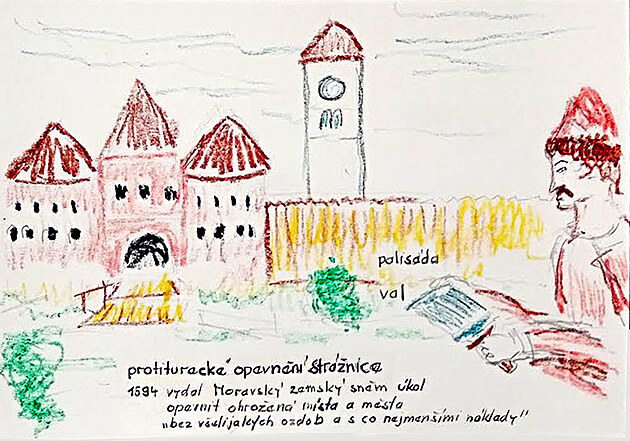 palisáda
val
protiturecká opevnění Strážnice
1594 vydal Moravský zemský sněm úkol
opevnit ohrožená místa a města
„bez všelijakých ozdob a s co nejmenšími náklady"